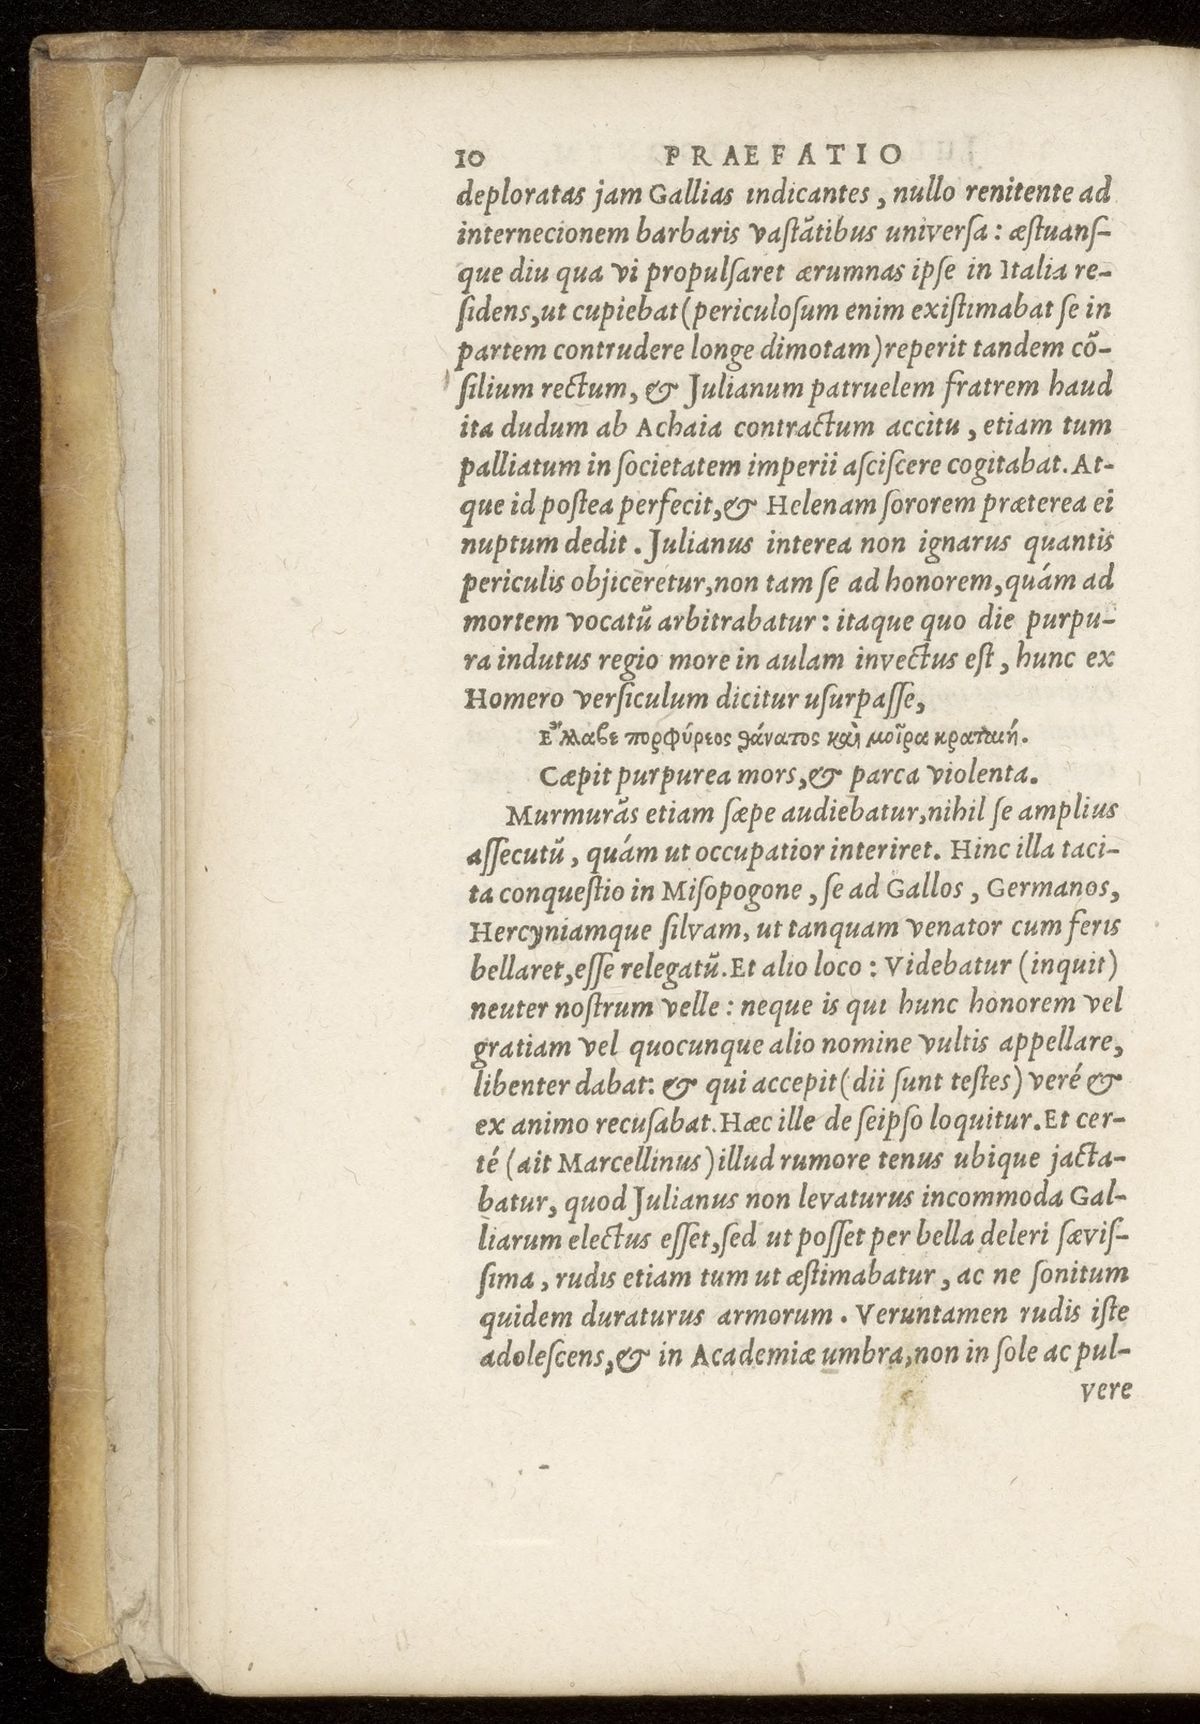 10 PRAEFATIO
deploratas jam Gallias indicantes, nullo renitente ad
internecionem barbaris vastātibus universa: æstuans-
que diu qua vi propulsaret ærumnas ipse in Italia re-
sidens, ut cupiebat (periculosum enim existimabat se in
partem contrudere longe dimotam) reperit tandem cō-
silium rectum, & Julianum patruelem fratrem haud
ita dudum ab Achaia contractum accitu, etiam tum
palliatum in societatem imperii asciscere cogitabat. At-
que id postea perfecit, & Helenam sororem præterea ei
nuptum dedit. Julianus interea non ignarus quantis
periculis objiceretur, non tam se ad honorem, quám ad
mortem vocatū arbitrabatur: itaque quo die purpu-
ra indutus regio more in aulam invectus est, hunc ex
Homero versiculum dicitur usurpasse,
Ἔλλαβε πορφύρεος θάνατος καὶ μοῖρα κραταιή.
Cæpit purpurea mors, & parca violenta.
Murmurās etiam sæpe audiebatur, nihil se amplius
assecutū, quám ut occupatior interiret. Hinc illa taci-
ta conquestio in Misopogone, se ad Gallos, Germanos,
Hercyniamque silvam, ut tanquam venator cum feris
bellaret, esse relegatū. Et alio loco: Videbatur (inquit)
neuter nostrum velle: neque is qui hunc honorem vel
gratiam vel quocunque alio nomine vultis appellare,
libenter dabat: & qui accepit (dii sunt testes) veré &
ex animo recusabat. Hæc ille de seipso loquitur. Et cer-
té (ait Marcellinus) illud rumore tenus ubique jacta-
batur, quod Julianus non levaturus incommoda Gal-
liarum electus esset, sed ut posset per bella deleri sævis-
sima, rudis etiam tum ut æstimabatur, ac ne sonitum
quidem duraturus armorum. Veruntamen rudis iste
adolescens, & in Academiæ umbra, non in sole ac pul-
vere